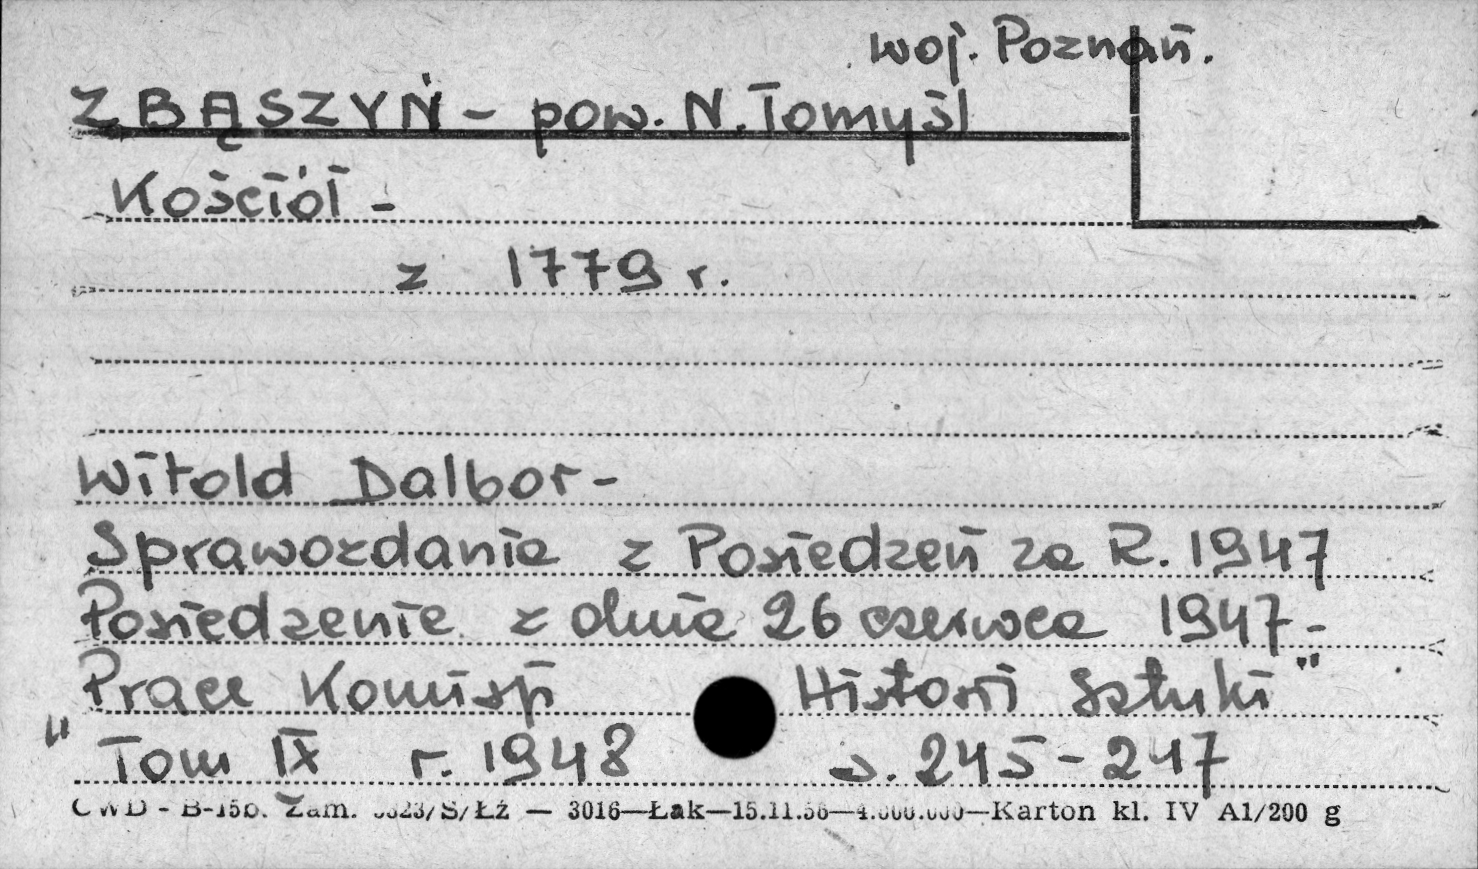 woj. Poznań.
ZBĄSZYŃ - pow. N. Tomyśl
Kościół -
z 1779 r.
Witold Dalbor -
Sprawozdanie z Posiedzeń za R. 1947
Posiedzenie z dnia 26 czerwca 1947 -
Prace Komisji Historii Sztuki"
" Tom IX r. 1948 s. 245-247
CWD - B-15b. Zam. /S/Łź — 3016—Łak—15.11.56—4.000.000—Karton kl. IV A1/200 g